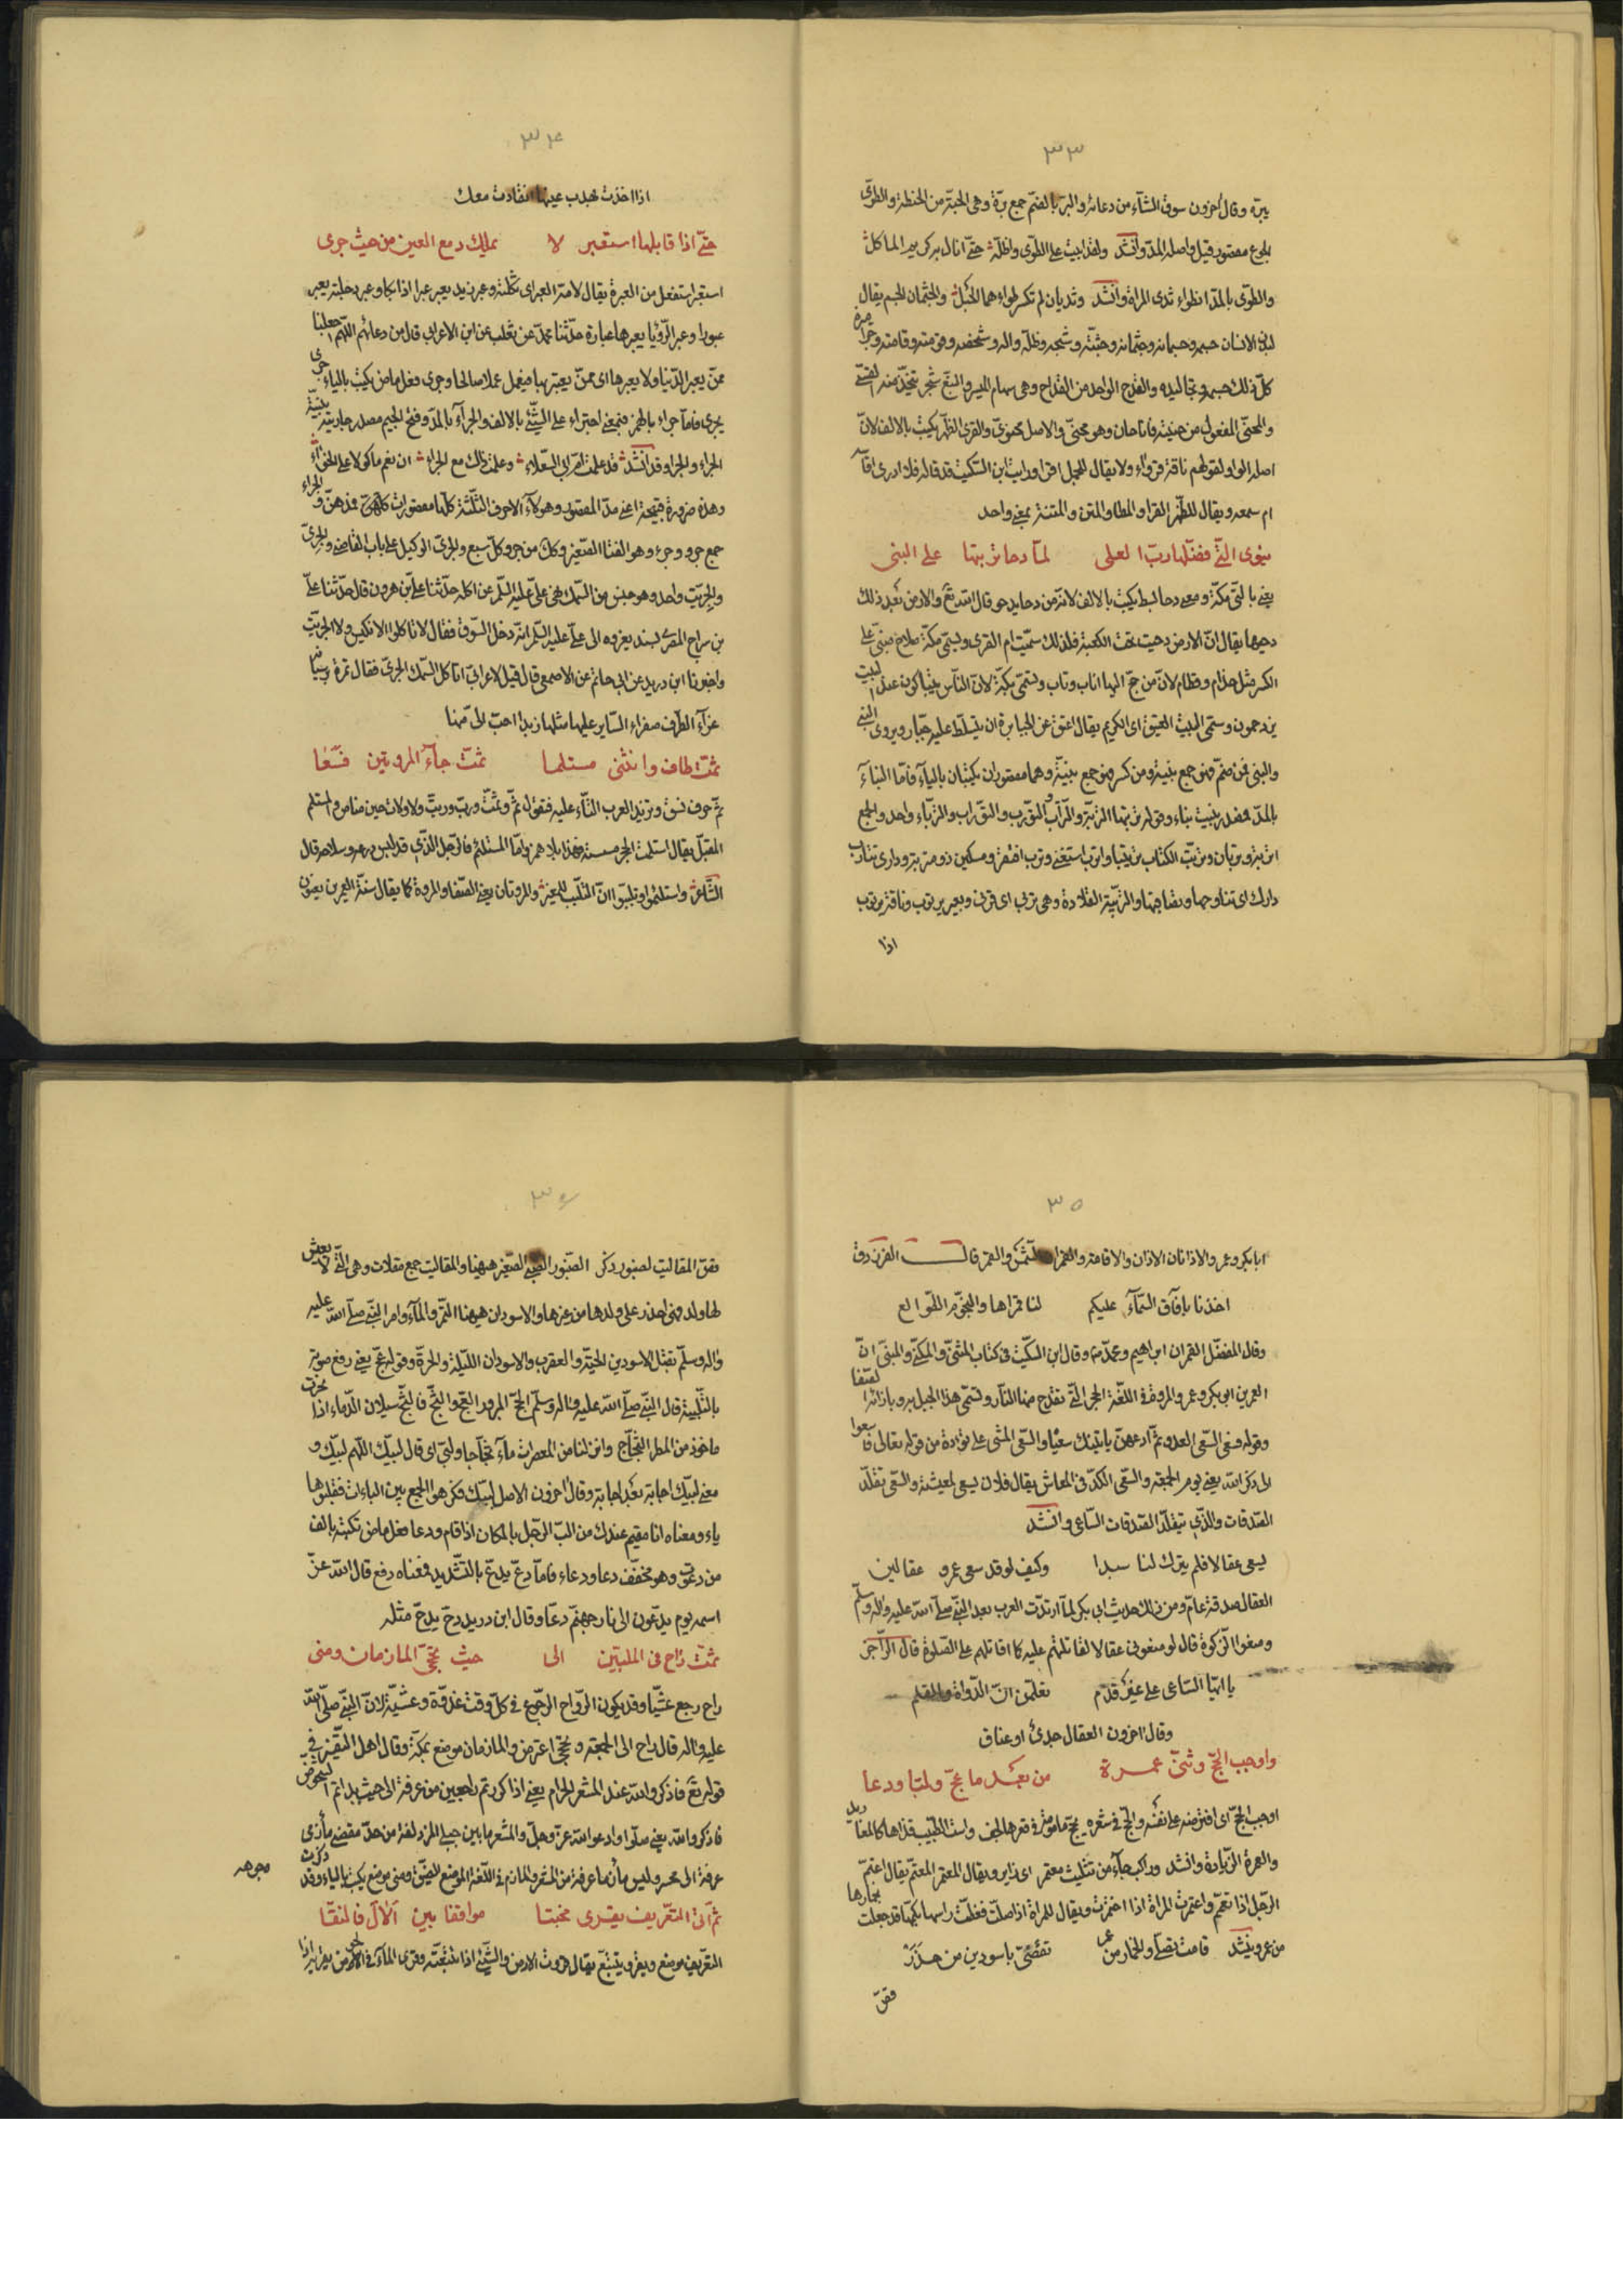 ٣٣
يبرّه وقال آخرون سوق الشآء من دعائه والبر بالضمّ جمع برّة وهى الحبّة من الحنطة والطوّى
بلجوع مقصور قيل واصله المدّ وانشد ولقد ابيت على الطّوى واظلّه حتّى انال به كريم الماكل
والطوّى بالمدّ انطواء ثدى المراة وانشد وثديان لم تكسر طواءهما الحُبل والجثمان الجسم يقال
لبدن الانسان جسمه وجسمانه وجثمانه وجثّته وشبحه وظلّه وآله وشخصه وقومته وقامته
كلّ ذلك جسمه وتجاليده والقدح الواحد من القداح وهى سهام الميسر والنبع شجر يتخذ منه القسّى
والمحنّى المفعول من حنيته فانا حان وهو محنّى والاصل محنوىّ والقرى الظّهر يكتب بالالف لانّ
اصله الواو لقولهم ناقة قرواء ولا يقال للجمل اقرا ورايت ابن السّكيت قد قاله فلا ادرى اقآله
ام سمعه ويقال للظّهر القرا والمطا والمتن والمتنة بمعنى واحد
ينوى التّى فضّلها ربّ العلى لمّا دحا تربتها على البنى
يعنى بالتّى مكّة ومعنى دحا بسط يكتب بالالف لانّه من دحا يدحو قال الله تع والارض بَعد ذلك
دحيها يقال انّ الارض دحيت تحت الكعبة فلذلك سمّيت ام القرى وتسمّى مكّة صلاح مبنى على
الكسر مثل حذام وقطام لانّ من حجّ اليها اناب وتاب وتسمّى بكّة لانّ النّاس يتباكّون عند البيت
يزدحمون وسمّى البيت العتيق اى الكريم يقال اعتق عن الجبابرة ان يتسلّط عليه جبّار ويروى البنى
والبنى فمن ضمّ فهو جمع بنية ومن كسر فهو جمع بنية وهما مقصوران يكتبان بالياء فامّا البنآء
بالمدّ فمصدر بنيت بناء وقوله تربتها التّربة والتّراب والتّورب والتّوراب والتّرباء واحد والجمع
اتربة وتربان وتربّت الكتاب تتريبا واترب استغنى وترب افتقر ومسكين ذو متربة ودارى تتارب
دارك اى تناوحها وتصاقبها والتّريبة القلادة وهى تربى اى قرنى وبعير تربوت وناقة تربوت
اذا
٣٤
اذا اخذت بهدب عينها انقادت معك
حتّى اذا قابلها استعبر لا يملك دمع العين من حيث جرى
استعبر استفعل من العبرة يقال لامّه العبر اى ثكلته وعبر زيد يعبر عبرا اذا بكا وعبر دجلة يعبر
عبورا وعبر الرّؤيا يعبرها عبارة حدّثنا محمّد عن ثعلب عن ابن الاعرابى قال من دعائهم اللّهمّ اجعلنا
ممّن يعبر الدّنيا ولا يعبرها اى ممّن يعتبر بها فيعمل عملا صالحا وجرى فعل ماض يكتب بالياء جرى
يجرى فامّا جراء بالهمز فبمعنى اجتراء على الشّئ بالالف والجرآء بالمدّ وفتح الجيم مصدر جارية بيّنة
الجراء والجراء وقد انشد قد علمت امّ ابى السّعلاء وعلمت ذاك مع الجراء ان نعم ماكولا على الخواء
وهذه ضرورة قبيحة اعنى مدّ المقصور وهؤلاء الاحرف الثّلثة كلّها مقصورات والجراء
جمع جرو وجرء وهو القثا الصّغير وكلّ من جرو كلّ سبع والجرىّ الوكيل على باب القاضى والجرىّ
والجرّيث واحد وهو جنس من السّمك نهى علىّ عليه السّلم عن اكله حدّثنا علىّ بن هرون قال حدّثنا علىّ
بن سراج المصرى بسند يعزوه الى علىّ عليه السّلم انّه دخل السّوق فقال لا تاكلوا الانكليس ولا الجرّيث
واخبرنا ابن دريد عن ابى حاتم عن الاصمعى قال قيل لاعرابى اتاكل السّمك الجرىّ فقال تمرة نرسيانة
غرّآء الطّرف صفراء السّاير عليها مثلها زبدا احبّ الىّ منها
ثمّت طاف وانثنى مستلما ثمّت جآء المروتين فسعا
ثمّ حرف نسق وتزيد العرب التّاء عليه فتقول ثمّ وثمّت وربّ وربّت ولا ولات حين مناص واستلم
المقبّل يقال استلمت الحجر مسسته فهذا بلا همز وامّا المستلئم فالرّجل الذّى قد لبس درعه وسلاحه قال
الشّاعر واستلئموا وتلبّبوا انّ التّلبّب للمغير والمروتان يعنى الصّفا والمروة كما يقال سنّة العمرين يعنون
٣٥
ابا بكر وعمر والاذانان الاذان والاقامة والقمران الشّمس والقمر قال الفرزدق
اخذنا بآفاق السّمآء عليكم لنا قمراها والنّجوم الطّوالع
وقال المفضّل القمران ابراهيم ومحمّد وقال ابن السّكّيت فى كتاب المثنّى والمكنّى والمبنى انّ
العمرين ابو بكر وعمر والمروة فى اللّغة الحجر التّى يقدح منها النّار وتسمّى هذا الجبل مروة بازائه الصّفا
وقوله فسعى السّعى العدو ثمّ ادعهنّ ياتينك سعيا والسّعى المشى على تؤادة من قوله تعالى فاسعوا
الى ذكر الله يعنى يوم الجمعة والسّعى الكدّ فى المعاش يقال فلان يسعى لمعيشته والسّعى تقلّد
الصّدقات والذّى يتقلّد الصّدقات السّاعى وانشد
يسعى عقالا فلم يترك لنا سبدا وكيف لو قد سعى عمرو عقالين
العقال صدقة عام ومن ذلك حديث ابى بكر لمّا ارتدّت العرب بعد النّبى صلّى الله عليه واله وسلّم
ومنعوا الزّكوة قال لو منعونى عقالا لقاتلتهم عليه كما اقاتلهم على الصّلوة قال الرّاجز
يا ايّها السّاعى على غير قدم تعلّمن انّ الدّواة والقلم
وقال آخرون العقال جدىٌ او عناق
واوجب الحجّ وثنّى عمرة من بَعد ما عجّ ولبّا ودعا
اوجب الحجّ اى افترضه على نفسه
والعمرة الزّيادة وانشد وراكب جآء من تثليث معتمر اى زاير ويقال المعتمر المعتمّ يقال اعتمّ
الرّجل اذا تعمّم واعتمرت المراة اذا اختمرت ويقال للمراة اذا صلّت فغطّت راسها بكمّها قد جعلت خمارها
من عمر وينشد قامت تصلّى والخمار من عمر تقصّنى باسودين من حذر
فقن
٣٦
فقن المقاليت لصنبور ذكر الصّنبور الصّبى الصّغير هيهنا والمقاليت جمع مقلات وهى التّى لا يعيش
لها ولد فهى احذر على ولدها من غيرها والاسودان هيهنا التّمر والمآء وامر النّبى صلّى الله عليه
واله وسلّم بقتل الاسودين الحيّة والعقرب والاسودان اللّيلة والحرّة وقوله عجّ يعنى رفع صوته
بالتّلبية قال النّبى صلّى الله عليه واله وسلّم الحجّ المبرور العجّ والثّجّ فالثّجّ سيلان الدّماء اذا نحرت
ماخوذ من المطر الثّجّاج وانزلنا من المعصرات مآء ثجّاجا ولبّى اى قال لبّيك اللّهم لبّيك و
معنى لبّيك اجابة بَعد اجابة وقال آخرون الاصل لبّبك فكرهوا الجمع بين الباءات فقلبوها
ياء ومعناه انا مقيم عندك من البّ الرّجل بالمكان اذا اقام ودعا فعل ماض تكتبه بالف
من دعوت وهو مخفّف دعا ودعاء فامّا دعّ يدعّ بالتّشديد فمعناه دفع قال الله عزّ
اسمه يوم يدعّون الى نار جهنّم دعّا وقال ابن دريد دحّ يدحّ مثله
ثمّت راح فى الملبّين الى حيث تحجّى المازمان ومنى
راح رجع عشيّا وقد يكون الرّواح الرّجوع فى كلّ وقت غدوة وعشيّة لانّ النّبى صلّى الله
عليه واله قال راح الى الجمعة وتحجّى اعترض والمازمان موضع بمكّة وقال اهل التّفسير فى
قوله تع فاذكروا الله عند المشعر الحرام يعنى اذا كررتم راجعين من عرفة الى حيث بداتم
فاذكروا الله يعنى صلّوا وادعوا الله عزّ وجلّ والمشعر ما بين جبلى المزدلفة من حدّ مفضى مأزمى
عرفة الى محسر وليس مأزما عرفة من المشعر والمازم فى اللّغة الموضع الضيّق ومنى موضع يكتب بالياء وقد ذكرت
ثمّ اتى التّعريف يقرى مخبتا مواقفا بين الآل فالنّقا
التّعريف موضع ويقرو يتتبّع يقال قروت الارض والشّئ اذا تتبّعته